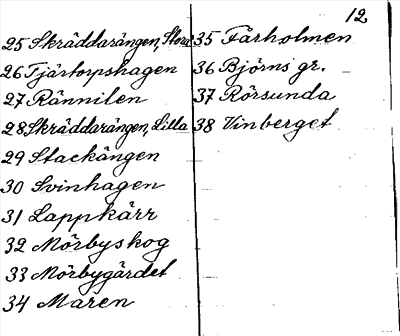 12
25 Skräddarängen, Stora
26 Tjärtorpshagen
27 Rännilen
28 Skräddarängen, Lilla
29 Stackängen
30 Svinhagen
31 Lappkärr
32 Mörbyskog
33 Mörbygärdet
34 Maren
35 Fårholmen
36 Björns gr.
37 Rörsunda
38 Vinberget